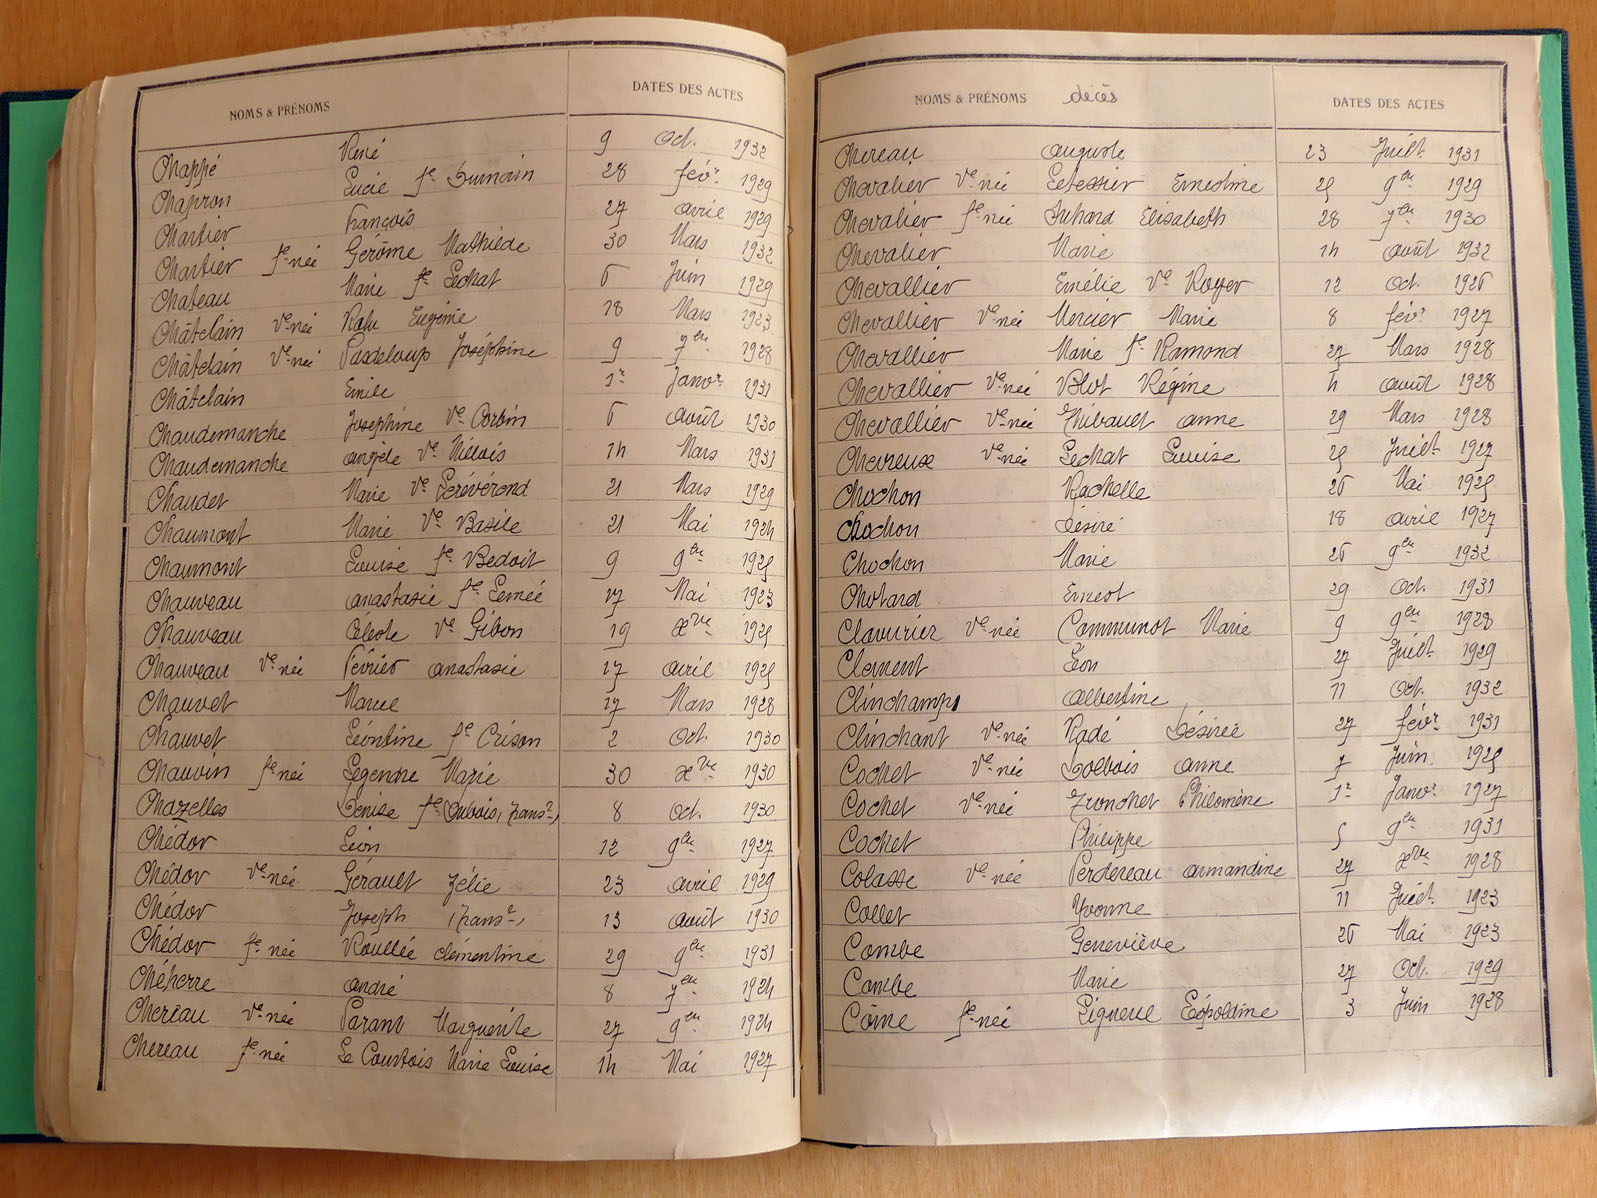 NOMS & PRÉNOMS DATES DES ACTES
Chappé René 9 Oct. 1932
Chapron Lucie fe Dumain 28 févr 1929
Chartier François 27 avril 1929
Chartier fe née Gérôme Mathilde 30 Mars 1932
Chateau Marie fe Lechat 6 Juin 1929
Châtelain Ve née Ralu Eugénie 18 Mars 1923
Châtelain Ve née Pasdeloup Joséphine 9 7bre 1928
Châtelain Emile 1r Janvr 1931
Chaudemanche Joséphine Ve Corbin 6 août 1930
Chaudemanche angèle Ve 14 Mars 1931
Chaudet Marie Ve Lerévérend 21 Mars 1929
Chaumont Marie Ve Basile 21 Mai 1924
Chaumont Louise fe Bedoit 9 9bre 1925
Chauveau anastasie fe Lemée 17 Mai 1923
Chauveau Céleste Ve Gibon 19 Xbre 1925
Chauveau Ve née Février anastasie 17 avril 1925
Chauvet Marie 17 Mars 1928
Chauvet Léontine fe Crison 2 Oct. 1930
Chauvin fe née Legendre Marie 30 Xbre 1930
Chazelles Denise fe Dubois, (trans on) 8 Oct. 1930
Chédor Léon 12 9bre 1927
Chédor Ve née Gérault Zélie 23 avril 1929
Chédor Joseph (trans on) 13 août 1930
Chédor fe née Roullée clémentine 29 9bre 1931
Chéherre andré 8 7bre 1924
Chereau Ve née Parant Marguerite 27 9bre 1924
Chereau fe née Le Courtois Marie Louise 14 Mai 1927
NOMS & PRÉNOMS décès DATES DES ACTES
Chereau auguste 23 Juillt 1931
Chevalier Ve née Letessier Ernestine 25 9bre 1929
Chevalier fe née Juhard Elisabeth 28 7bre 1930
Chevalier Marie 14 août 1932
Chevallier Emélie Ve Royer 12 Oct. 1926
Chevallier Ve née Mercier Marie 8 févr 1927
Chevallier Marie fe Ramond 27 Mars 1928
Chevallier Ve née Blot Régine 4 août 1928
Chevallier Ve née Thibault anne 29 Mars 1928
Chevreux Ve née Lechat Louise 25 Juillt 1927
Chochon Rachelle 26 Mai 1925
Chochon Désiré 18 avril 1927
Chochon Marie 26 9bre 1932
Chotard Ernest 29 Oct. 1931
Clavurier Ve née Communot Marie 9 9bre 1928
Clément Léon 27 Juillt 1929
Clinchamps Albertine 11 Oct. 1932
Clinchant Ve née Radé Désirée 27 févr 1931
Cochet Ve née anne 7 Juin 1925
Cochet Ve née Tronchet Philomène 1r Janvr 1927
Cochet Philippe 5 9bre 1931
Colasse Ve née Perdereau armandine 27 Xbre 1928
Collet Yvonne 11 Juillt 1923
Combe Geneviève 26 Mai 1923
Combe Marie 27 Oct. 1929
Côme fe née Pigneul Léopoldine 3 Juin 1928